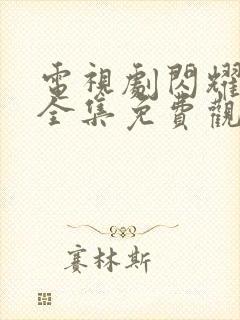 電視劇閃耀
全集免費觀
賽林斯